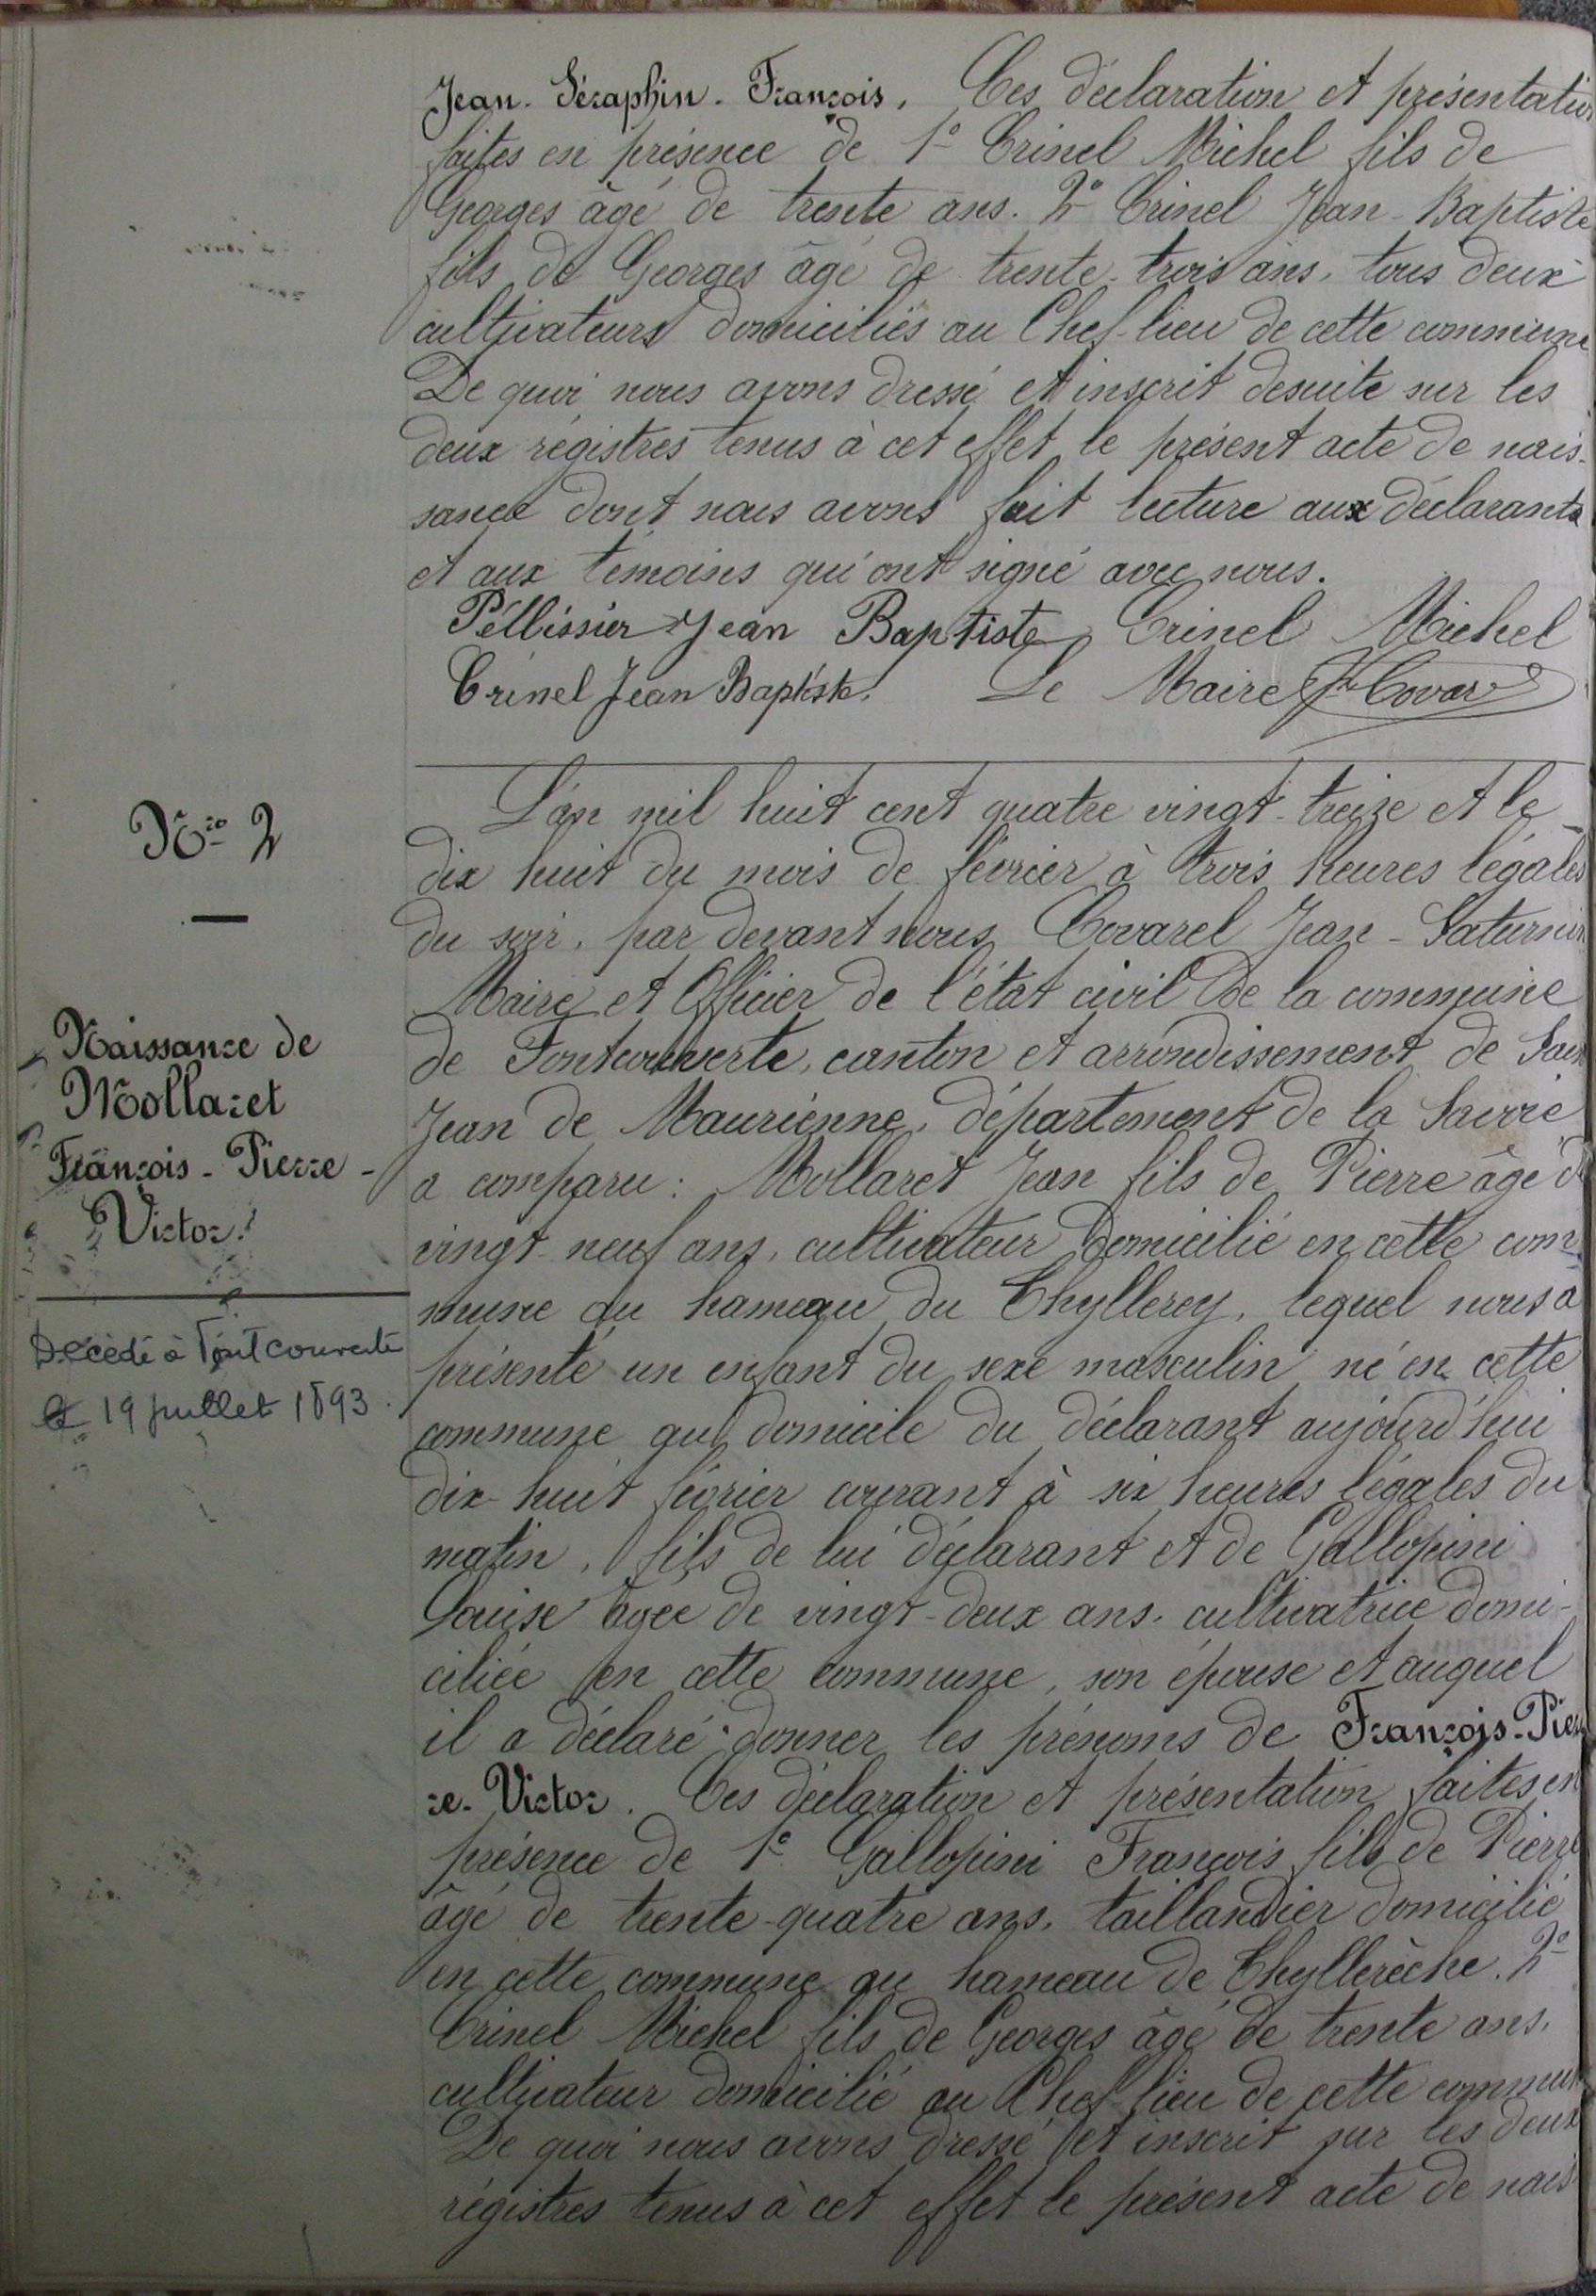 Jean-Séraphin-François. Ces déclaration et présentation
faites en présence de 1° Crinel Michel fils de
Georges âgé de trente ans. 2° Crinel Jean-Baptiste
fils de Georges âgé de trente-trois ans, tous deux
cultivateurs domiciliés au Chef-lieu de cette commune
De quoi nous avons dressé et inscrit desuite sur les
deux régistres tenus à cet effet le présent acte de nais-
sance dont nous avons fait lecture aux déclarants
et aux témoins qui ont signé avec nous.
Péllissier Jean Baptiste Crinel Michel
Crinel Jean Baptiste. Le Maire J Covar
Nro 2
Naissance de
Mollaret
François-Pierre-
Victor.
Décédé à Fontcouverte
le 19 juillet 1893.
L'an mil huit cent quatre vingt-treize et le
dix huit du mois de février à trois heures légales
du soir, par devant nous Covarel Jean-Saturnin
Maire et Officier de l'état civil de la commune
de Fontcouverte, canton et arrondissement de Saint
Jean de Maurienne, département de la Savoie
a comparu: Mollaret Jean fils de Pierre âgé de
vingt-neuf ans, cultivateur domicilié en cette com-
mune au hameau du Chyllerey, lequel nous a
présenté un enfant du sexe masculin né en cette
commune au domicile du déclarant aujourd'hui
dix-huit février courant à six heures légales du
matin, fils de lui déclarant et de Gallopini
Louise âgée de vingt-deux ans, cultivatrice domi-
ciliée en cette commune, son épouse et auquel
il a déclaré donner les prénoms de François-Pier
re-Victor. Ces déclaration et présentation faites en
présence de 1° Gallopini François fils de Pierre
âgé de trente-quatre ans, taillandier domicilié
en cette commune au hameau de Chyllerèche. 2°
Crinel Michel fils de Georges âgé de trente ans,
cultivateur domicilié au Chef-lieu de cette commune
De quoi nous avons dressé et inscrit sur les deux
régistres tenus à cet effet le présent acte de nais